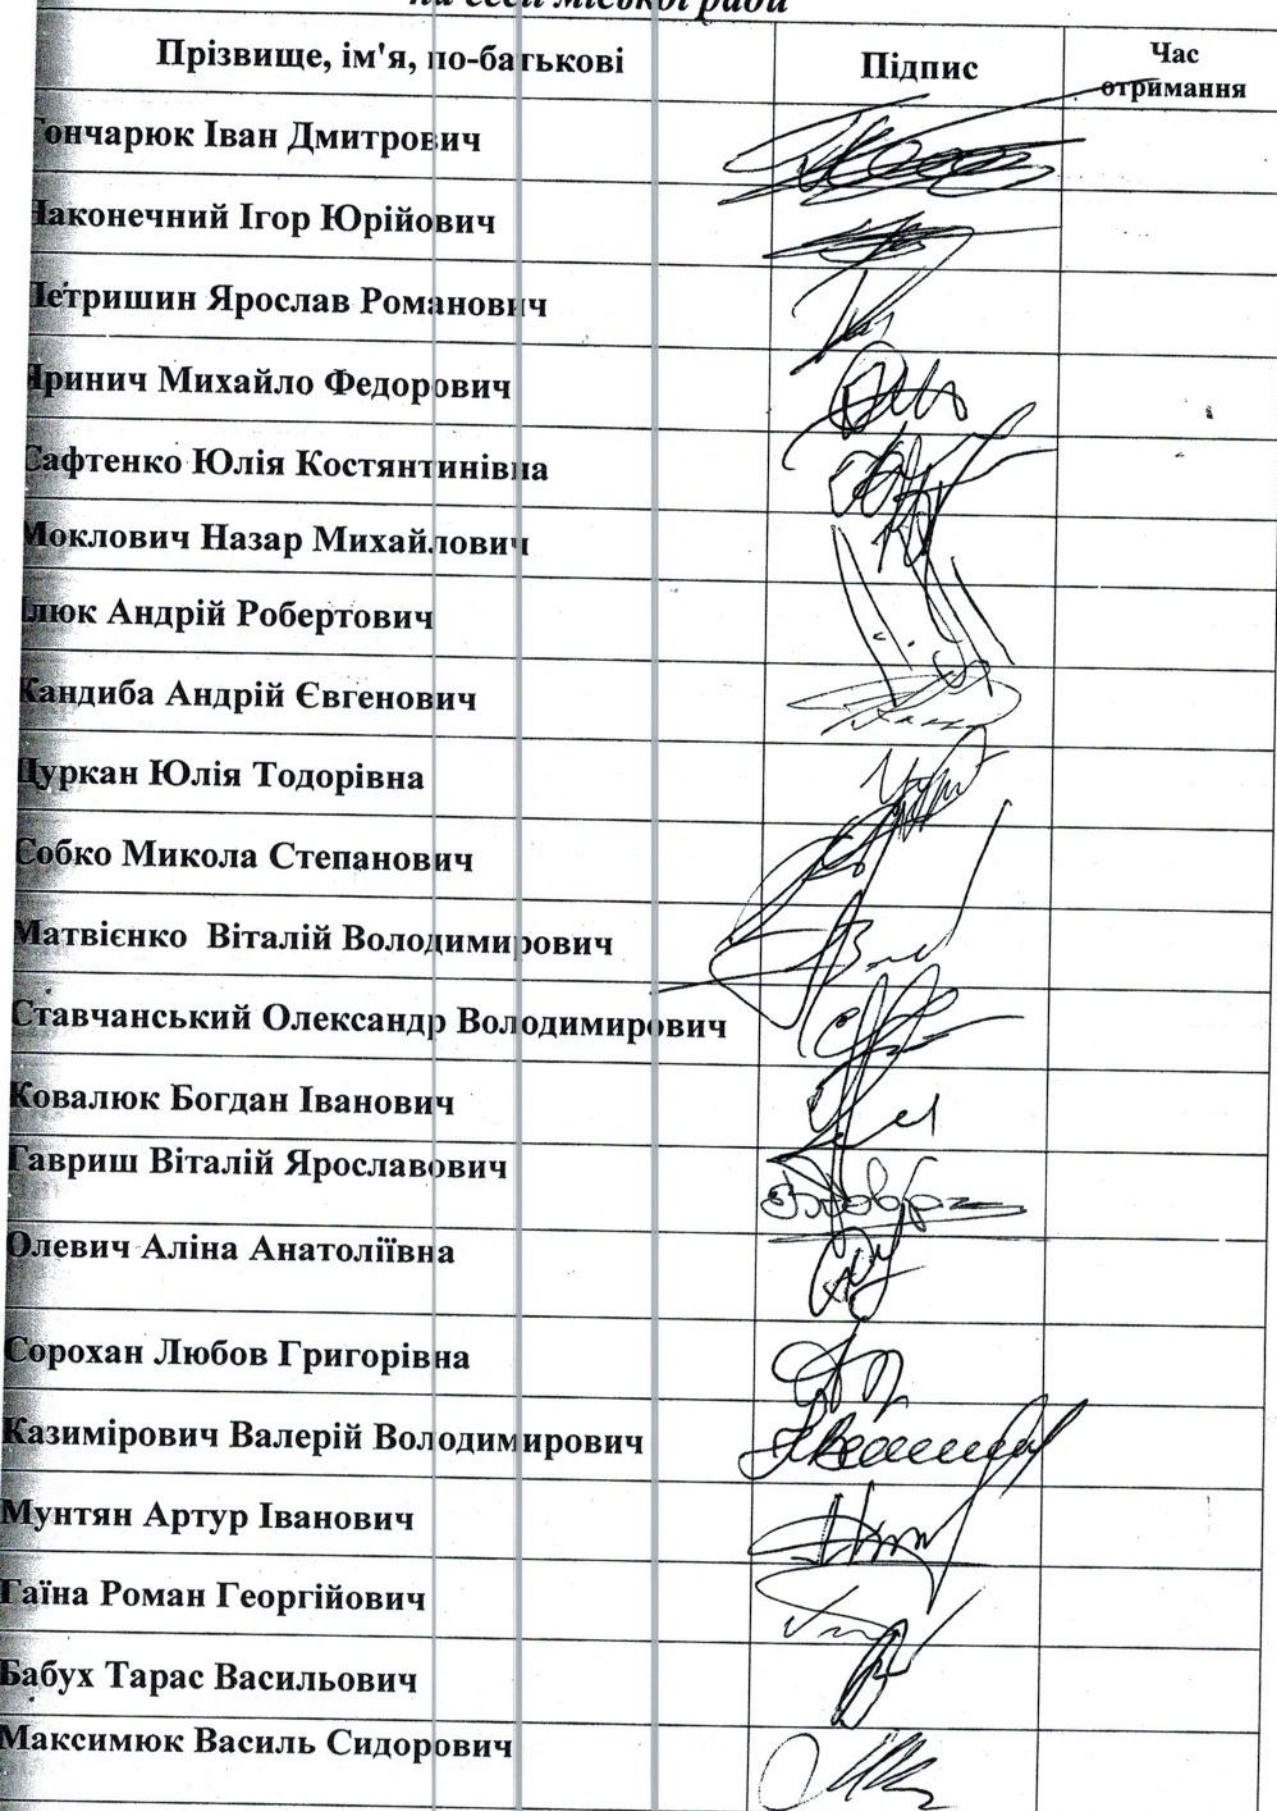 на сесії міської ради
Прізвище, ім'я, по-батькові Підпис Час
отримання
Гончарюк Іван Дмитрович
Наконечний Ігор Юрійович
Петришин Ярослав Романович
Яринич Михайло Федорович
Сафтенко Юлія Костянтинівна
Моклович Назар Михайлович
Ілюк Андрій Робертович
Кандиба Андрій Євгенович
Цуркан Юлія Тодорівна
Собко Микола Степанович
Матвієнко Віталій Володимирович
Ставчанський Олександр Володимирович
Ковалюк Богдан Іванович
Гавриш Віталій Ярославович
Олевич Аліна Анатоліївна
Сорохан Любов Григорівна
Казимірович Валерій Володимирович
Мунтян Артур Іванович
Гаїна Роман Георгійович
Бабух Тарас Васильович
Максимюк Василь Сидорович